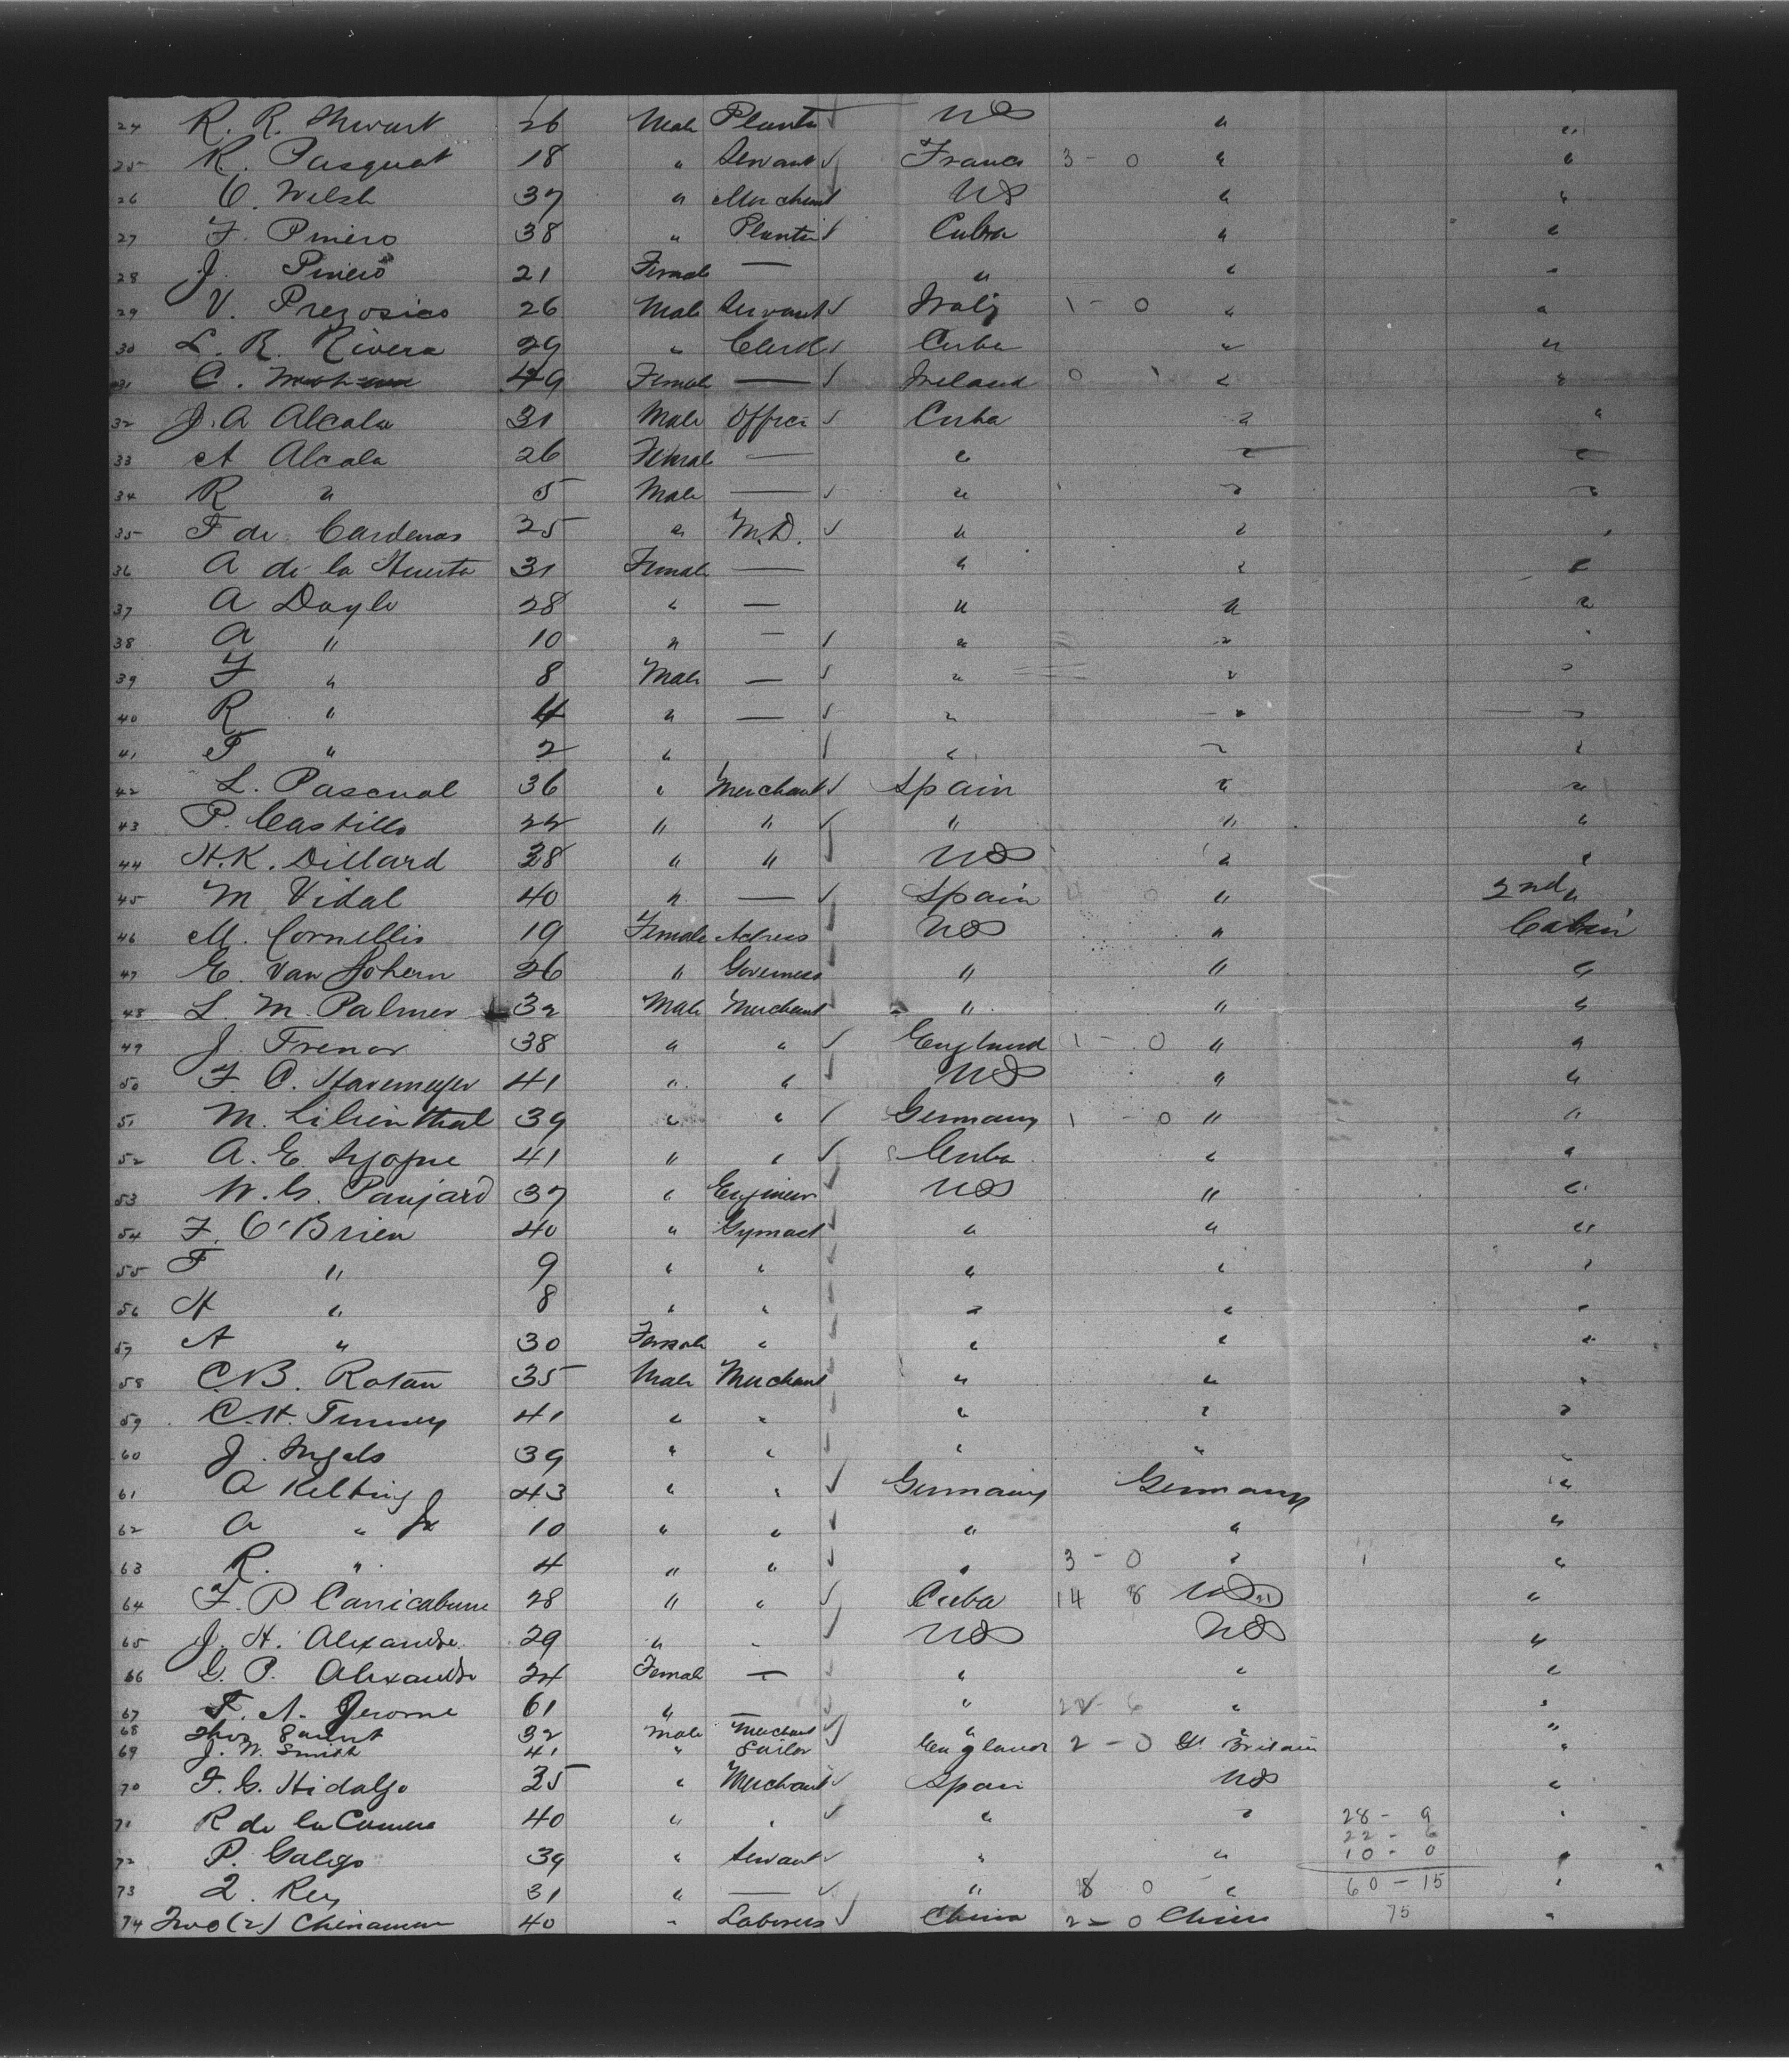 24 R. R. Stewart 26 Male Planter US " "
25 R. Pasquat 18 " Servant France 3 - 0 " "
26 C. Welsh 37 " Merchant US " "
27 F. Piniero 38 " Planter Cuba " "
28 J. Piniero 21 Female — " " "
29 V. Prezosico 26 Male Servant Italy 1 - 0 " "
30 L. R. Rivera 29 " Clerk Cuba " "
31 C. 49 Female — Ireland 0 1 " "
32 J. A Alcala 31 Male Officer Cuba " "
33 A Alcala 26 Female — " " "
34 R " 5 Male — " " "
35 F de Cardenas 25 " M.D. " " "
36 A de la Huerta 31 Female — " " "
37 A Doyle 28 " — " " "
38 A " 10 " — " " "
39 F " 8 Male — " " "
40 R " 4 " — " " "
41 F " 2 " " " "
42 L. Pascual 36 " Merchant Spain " "
43 P. Castillo 22 " " " " "
44 H. K. Dillard 38 " " US " "
45 M Vidal 40 " — Spain 0 " 2nd "
46 M. Cornellis 19 Female Actress US " Cabin
47 E. Van Hohern 26 " Governess " " "
48 L. M. Palmer 32 Male Merchant " " "
49 J. Frenor 38 " " England 1 - 0 " "
50 F C. Havemeyer 41 " " US " "
51 M. Lilienthal 39 " " Germany 1 - 0 " "
52 A. E. 41 " " Cuba " "
53 W. G. Panjard 37 " Engineer US " "
54 F. O'Brien 40 " Gymast " " "
55 F " 9 " " " " "
56 H " 8 " " " " "
57 A " 30 Female " " " "
58 C. B. Rotan 35 Male Merchant " " "
59 C. H. Tenney 41 " " " " "
60 J. Ingals 39 " " " " "
61 A Kelting 43 " " Germany Germany "
62 A " Jr 10 " " " " "
63 R. " 4 " " " 3 - 0 " 1 "
64 F. P Canicabune 28 " " Cuba 14 8 US 21 "
65 J. H. Alexandre 29 " " US US "
66 G. P. Alexandre 24 Female — " " "
67 F. A. Jerome 61 " — " 22 - 6 " "
68 Thos 32 Male Merchant " " "
69 J. W. Smith 41 " Sailor England 2 - 0 Gt Britain "
70 F. G. Hidalgo 35 " Merchant Spain US "
71 R de la Camera 40 " " " " 28 - 9 "
22 - 6
72 P. Galigo 39 " Servant " " 10 - 0 "
73 L. Rey 31 " — " 18 0 " 60 - 15 "
74 Two (2) Chinamen 40 " Laborers China 2 - 0 China 75 "